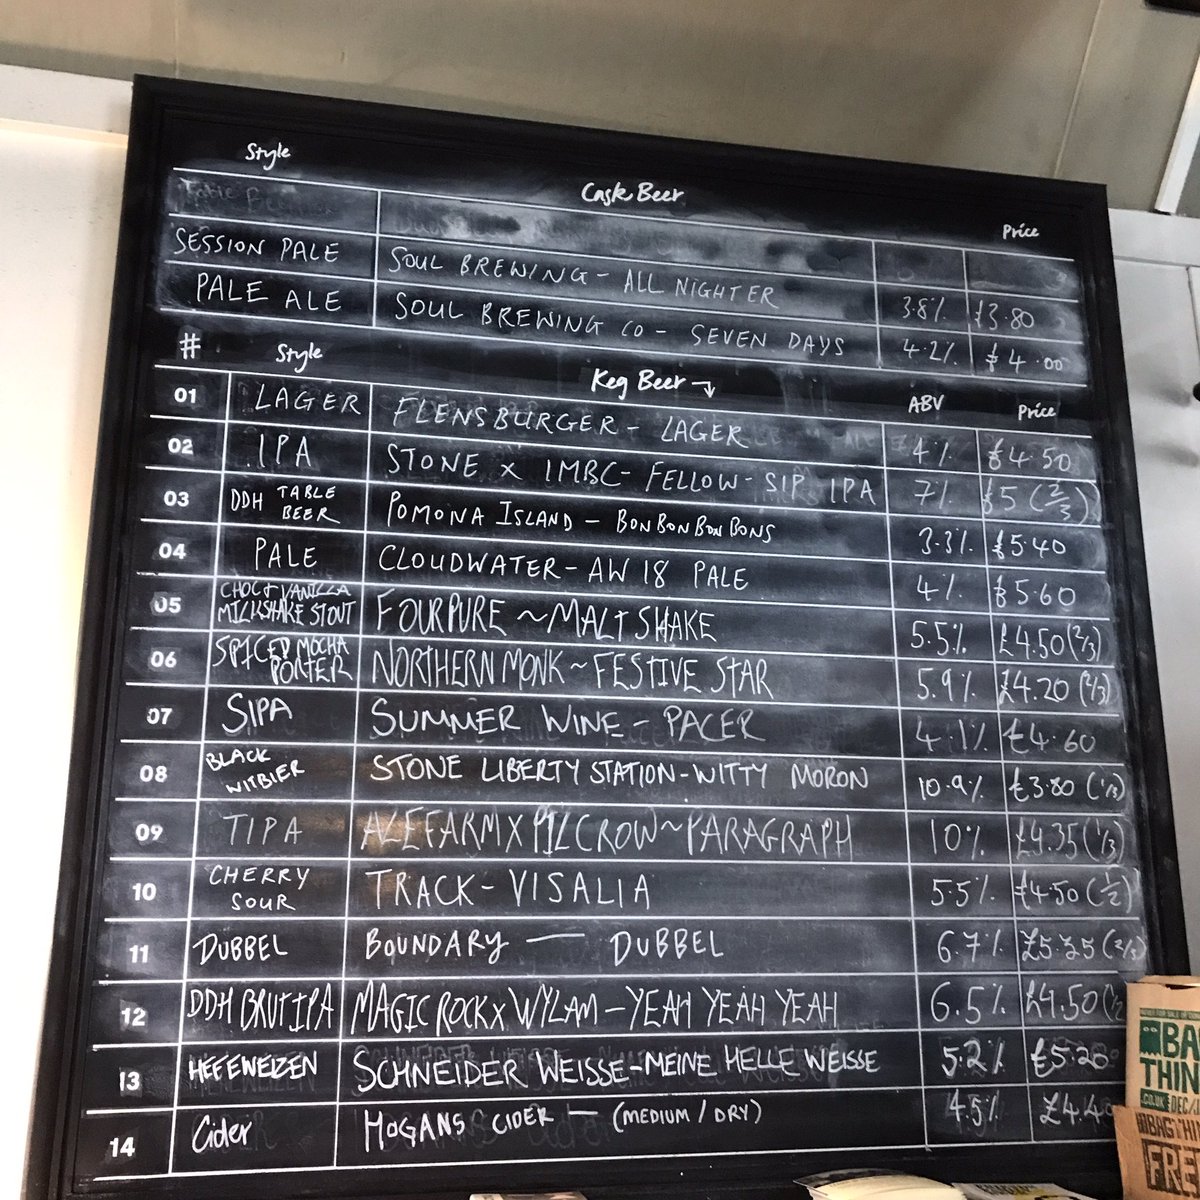 Style
Cask Beer
Price
SESSION PALE SOUL BREWING - ALL NIGHTER 3.8% £3.80
PALE ALE SOUL BREWING CO - SEVEN DAYS 4.2% £4.00
# Style Keg Beer ABV Price
01 LAGER FLENSBURGER - LAGER 4% £4.50
02 IPA STONE x IMBC - FELLOW-SIP IPA 7% £5 (2/3)
03 DDH TABLE BEER POMONA ISLAND - BONBONBONBONS 3.3% £5.40
04 PALE CLOUDWATER - AW18 PALE 4% £5.60
05 CHOC & VANILLA MILKSHAKE STOUT FOURPURE ~ MALT SHAKE 5.5% £4.50 (2/3)
06 SPICED MOCHA PORTER NORTHERN MONK ~ FESTIVE STAR 5.9% £4.20 (2/3)
07 SIPA SUMMER WINE - PACER 4.1% £4.60
08 BLACK WITBIER STONE LIBERTY STATION - WITTY MORON 10.9% £3.80 (1/3)
09 TIPA ALEFARM X PILCROW ~ PARAGRAPH 10% £4.35 (1/3)
10 CHERRY SOUR TRACK - VISALIA 5.5% £4.50 (1/2)
11 DUBBEL BOUNDARY — DUBBEL 6.7% (2/3)
12 DDH BRUT IPA MAGIC ROCK x WYLAM - YEAH YEAH YEAH 6.5% £4.50
13 HEFEWEIZEN SCHNEIDER WEISSE - MEINE HELLE WEISSE 5.2% £5.20
14 Cider HOGANS CIDER - (MEDIUM / DRY) 4.5% £4.40
BA
THIN
FRE